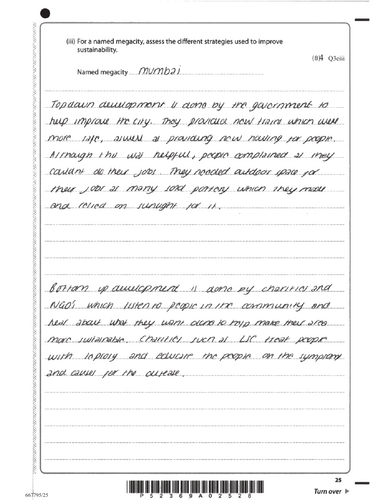 (iii) For a named megacity, assess the different strategies used to improve
sustainability.
(8)4 Q3ciii
Named megacity mumbai
Top down development is done by the government to
help improve the city. They provided new trains which were
more safe, aswell as providing new housing for people.
Although this was helpful, people complained as they
couldnt do their jobs. They needed outdoor space for
their jobs as many sold pottery which they made
and relied on sunlight for it.
Bottom up development is done by charities and
NGO's which listen to people in the community and
hear about what they want done to help make their area
more sustainable. Charities such as LSC treat people
with leprosy and educate the people on the symptoms
and causes for the disease.
25
Turn over
P52369A02528
667795/25